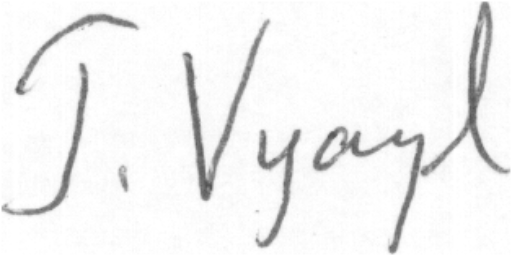 J. Vyayl